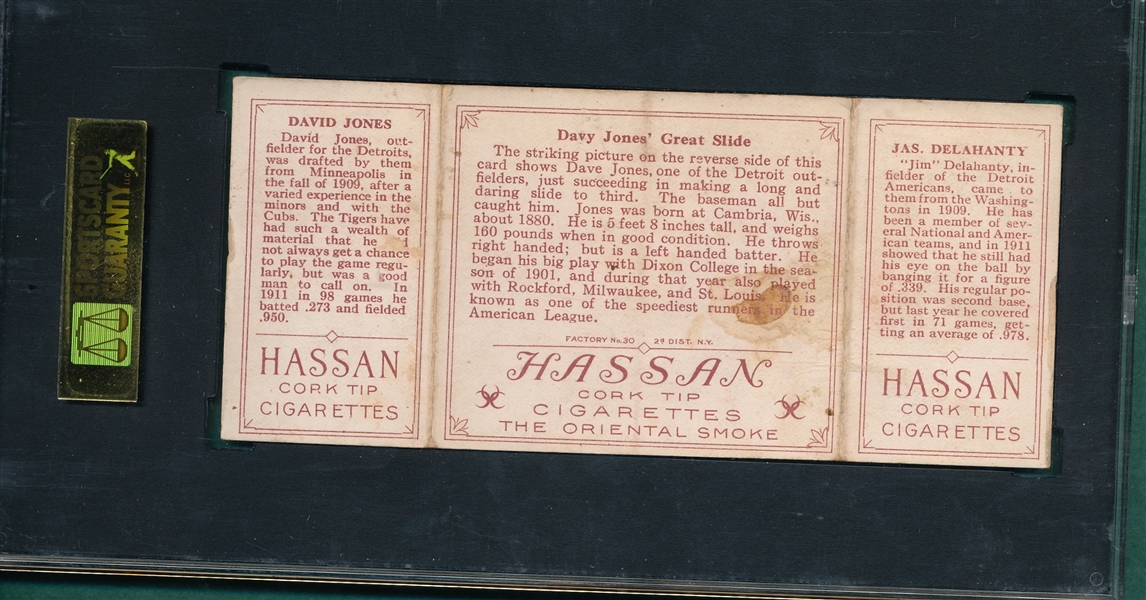 SPORTSCARD
GUARANTY LLC
DAVID JONES
David Jones, out-
fielder for the Detroits,
was drafted by them
from Minneapolis in
the fall of 1909, after a
varied experience in the
minors and with the
Cubs. The Tigers have
had such a wealth of
material that he
not always get a chance
to play the game regu-
larly, but was a good
man to call on. In
1911 in 98 games he
batted .273 and fielded
.950.
HASSAN
CORK TIP
CIGARETTES
Davy Jones' Great Slide
The striking picture on the reverse side of this
card shows Dave Jones, one of the Detroit out-
fielders, just succeeding in making a long and
daring slide to third. The baseman all but
caught him. Jones was born at Cambria, Wis.,
about 1880. He is 5 feet 8 inches tall, and weighs
160 pounds when in good condition. He throws
right handed; but is a left handed batter. He
began his big play with Dixon College in the sea-
son of 1901, and during that year also played
with Rockford, Milwaukee, and St. Louis. He is
known as one of the speediest runners in the
American League.
FACTORY No. 30 2d DIST. N.Y.
HASSAN
CORK TIP
CIGARETTES
THE ORIENTAL SMOKE
JAS. DELAHANTY
"Jim" Delahanty, in-
fielder of the Detroit
Americans, came to
them from the Washing-
tons in 1909. He has
been a member of sev-
eral National and Amer-
ican teams, and in 1911
showed that he still had
his eye on the ball by
banging it for a figure
of .339. His regular po-
sition was second base,
but last year he covered
first in 71 games, get-
ting an average of .978.
HASSAN
CORK TIP
CIGARETTES